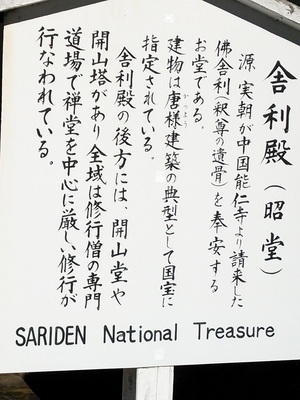 舎利殿（昭堂）
源実朝が中国能仁寺より請来した
佛舎利（釈尊の遺骨）を奉安する
お堂である。
建物は唐様建築の典型として国宝に
からよう
指定されている。
舎利殿の後方には、開山堂や
開山塔があり全域は修行僧の専門
道場で禅堂を中心に厳しい修行が
行なわれている。
SARIDEN National Treasure